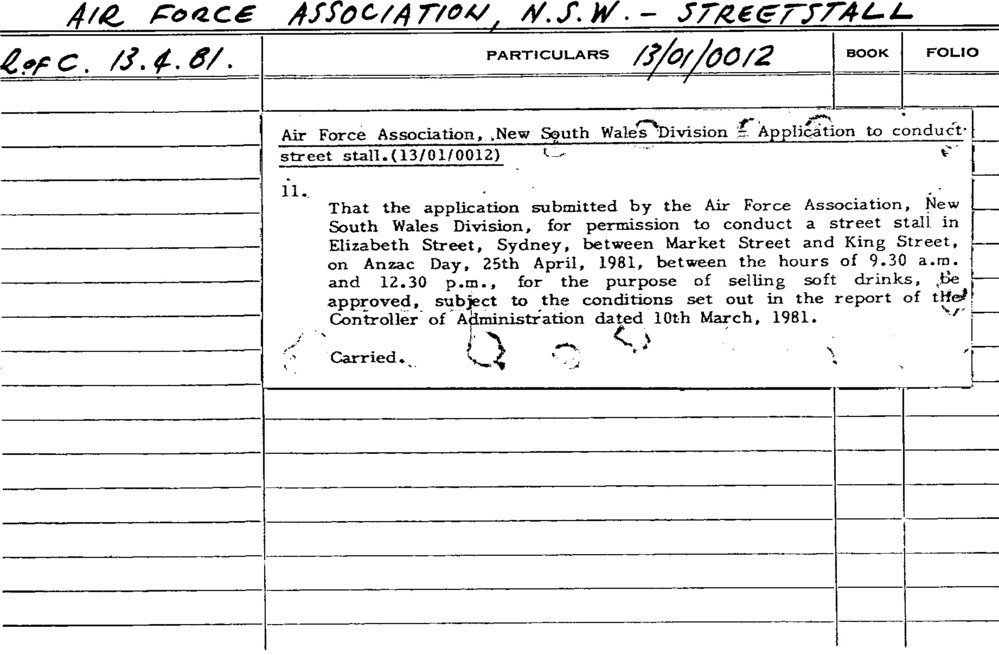 AIR FORCE ASSOCIATION, N.S.W. - STREETSTALL
R.of C. 13.4.81. PARTICULARS 13/01/0012 BOOK FOLIO
Air Force Association, New South Wales Division - Application to conduct
street stall.(13/01/0012)
ii.
That the application submitted by the Air Force Association, New
South Wales Division, for permission to conduct a street stall in
Elizabeth Street, Sydney, between Market Street and King Street,
on Anzac Day, 25th April, 1981, between the hours of 9.30 a.m.
and 12.30 p.m., for the purpose of selling soft drinks, be
approved, subject to the conditions set out in the report of the
Controller of Administration dated 10th March, 1981.
Carried.